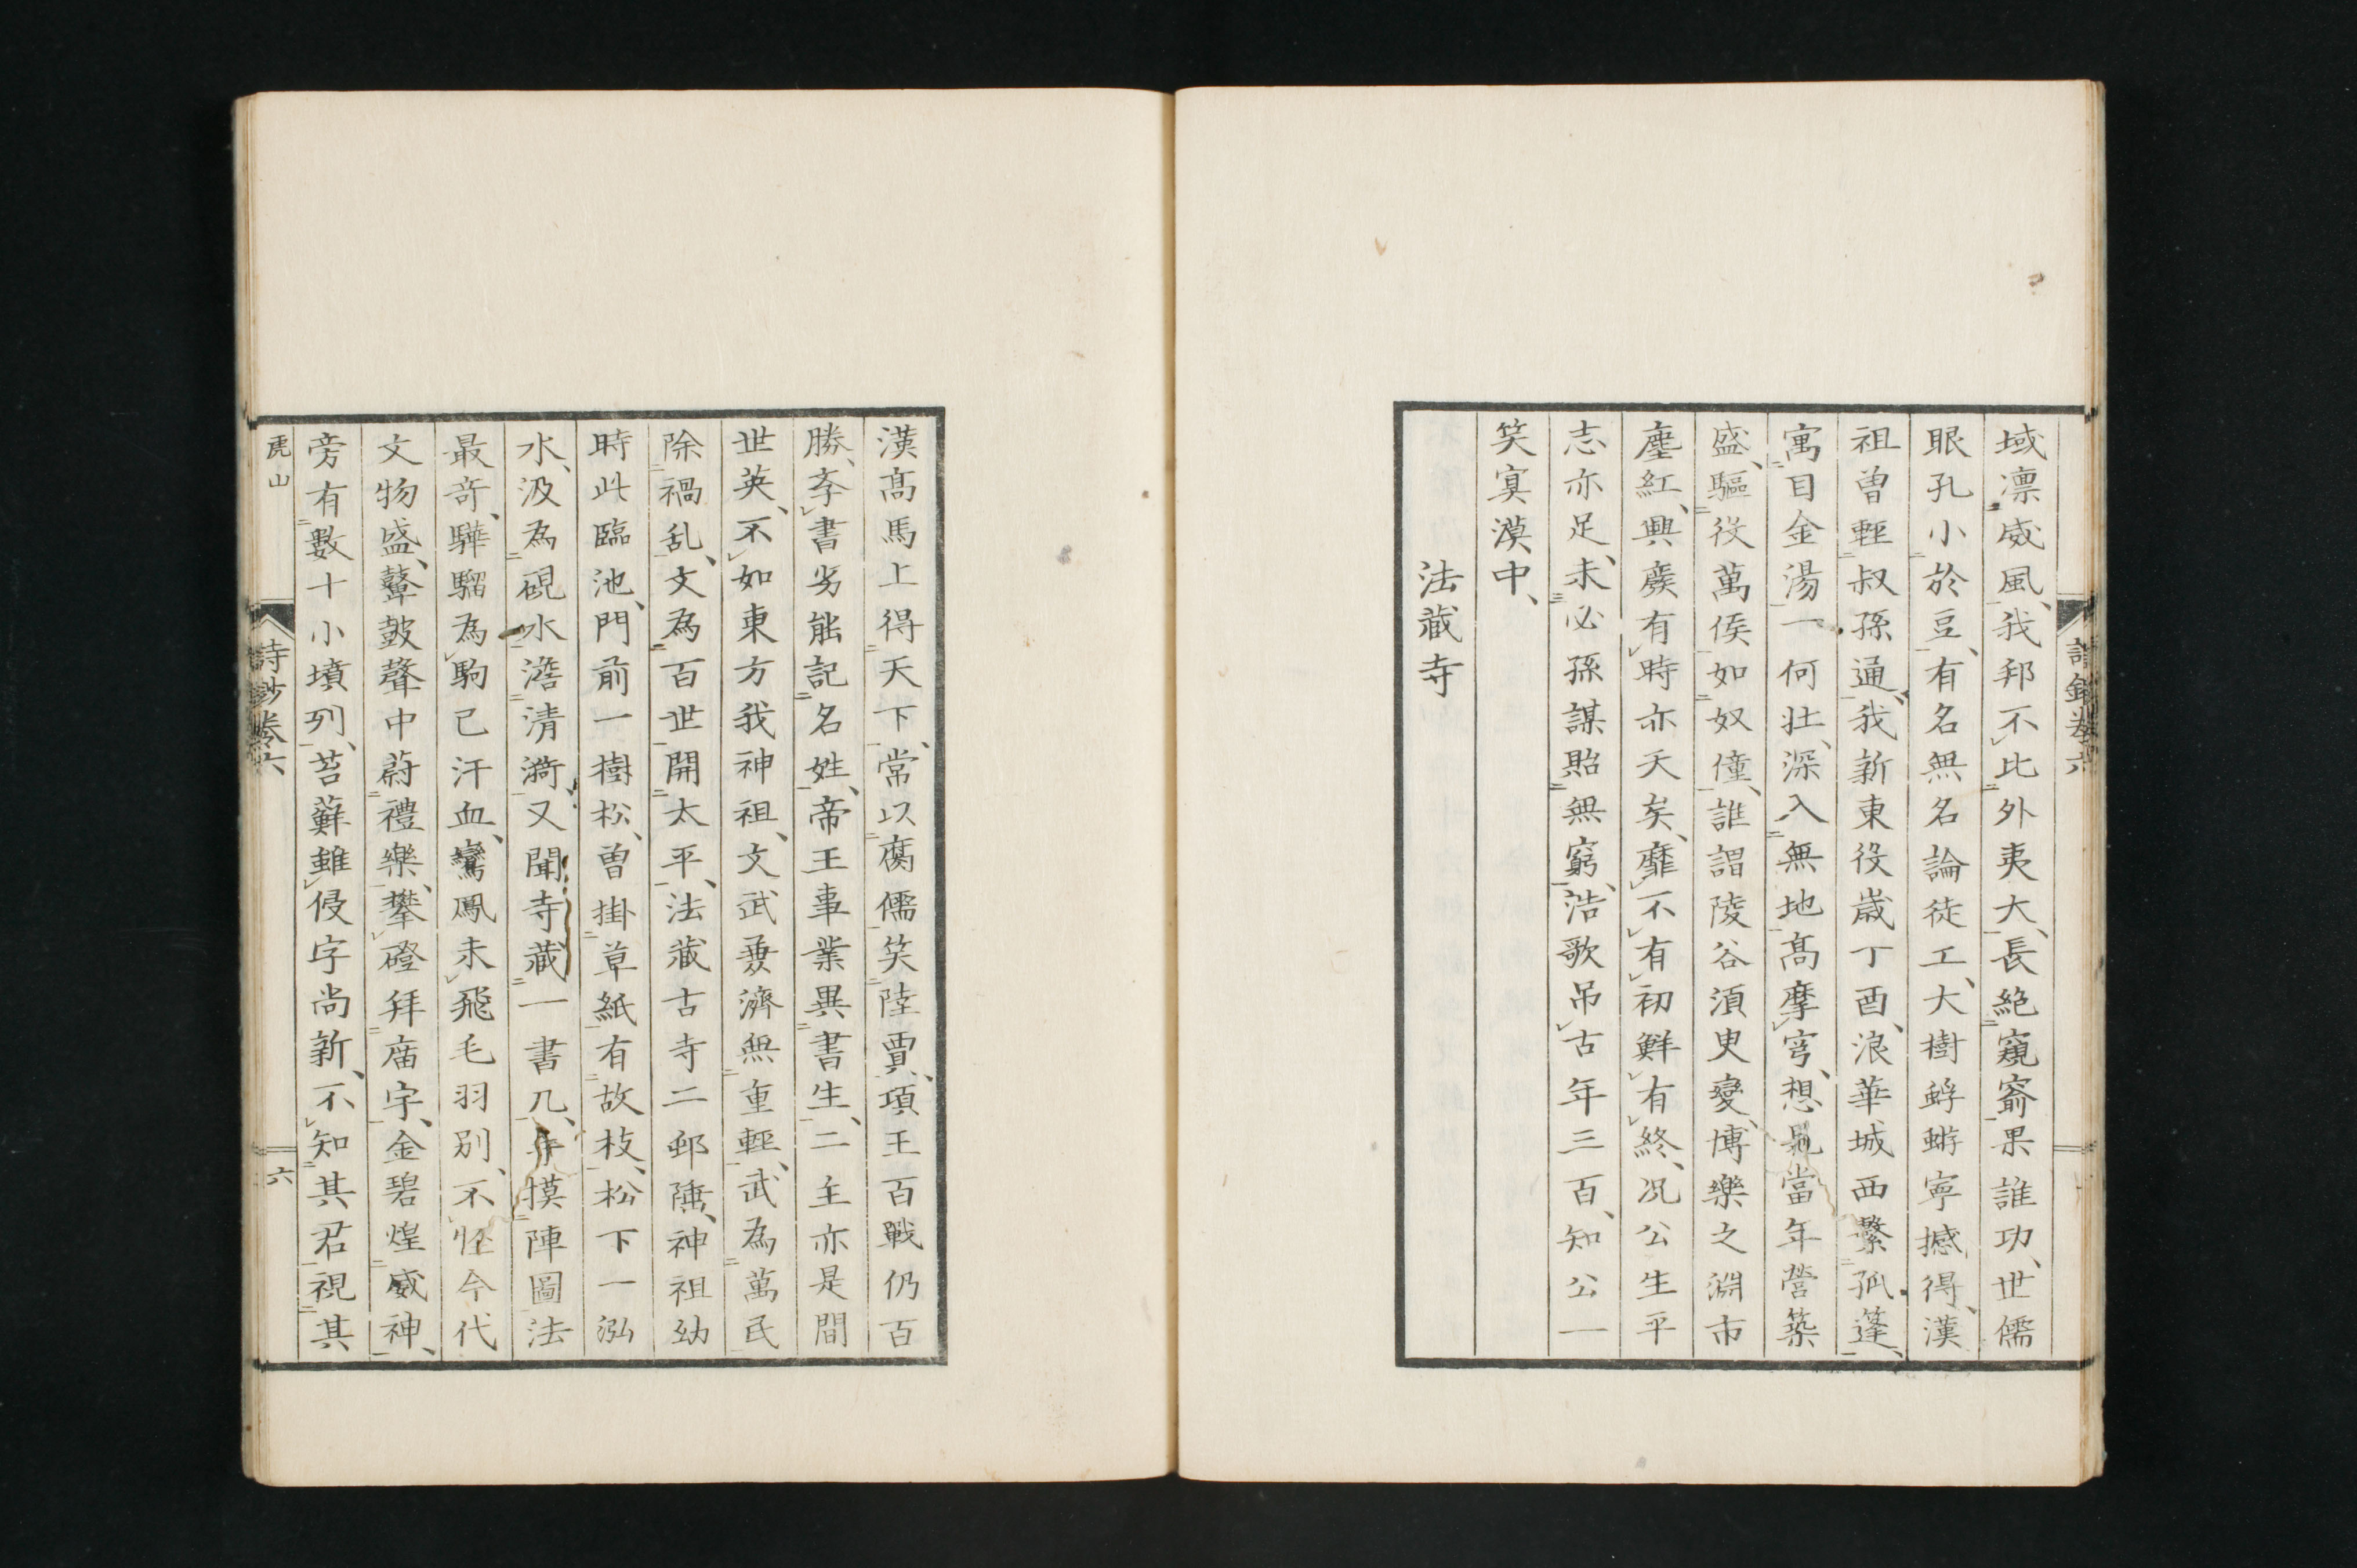 域凛威風、我邦不比外夷大、長絶窺窬果誰功、世儒
眼孔小於豆、有名無名論徒工、大樹蜉蝣寧撼得、漢
祖曽輕叔孫通、我新東役歳丁酉、浪華城西繫孤篷、
寓目金湯一何壮、深入無地高摩穹、想見當年營築
盛、驅役萬侯如奴僮、誰謂陵谷須臾變、愽樂之淵市
塵紅、興廢有時亦天矣、靡不有初鮮有終、况公生平
志亦足、未必孫謀貽無窮、浩歌吊古年三百、知公一
笑寞漠中、
法藏寺
漢高馬上得天下、常以腐儒笑陸賈、項王百戰仍百
勝、斈書劣能記名姓、帝王事業異書生、二主亦是間
世英、不如東方我神祖、文武兼濟無重輕、武為萬民
除禍乱、文為百世開太平、法藏古寺二邨陲、神祖幼
時此臨池、門前一樹松、曽掛草紙有故枝、松下一泓
水、汲為硯水澹清漪、又聞寺藏一書几、弄摸陣圖法
最竒、驊騮為駒已汗血、鸞鳳未飛毛羽别、不怪今代
文物盛、鼙鼓聲中蔚禮樂、攀磴拜庿宇、金碧煌威神、
旁有數十小墳列、苔蘚雖侵字尚新、不知其君視其
虎山
詩鈔卷六
六